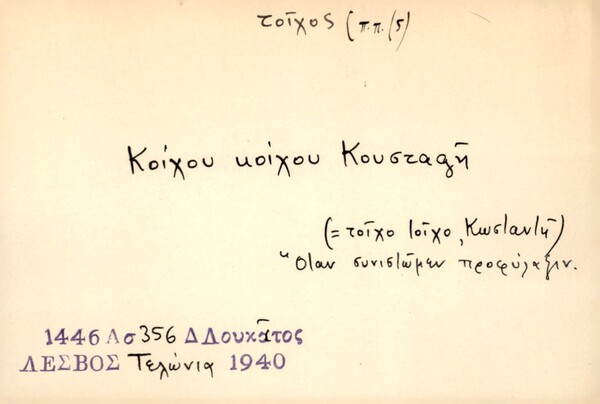 τοῖχος (π.π. 15)
Κοίχου κοίχου Κουσταδῆ
(= τοῖχο τοῖχο, Κωσταντῆ)
Ὅταν συνιστῶμεν προφύλαξιν.
1446 Λσ 356 Δ Δουκᾶτος
ΛΕΣΒΟΣ Τελώνια 1940